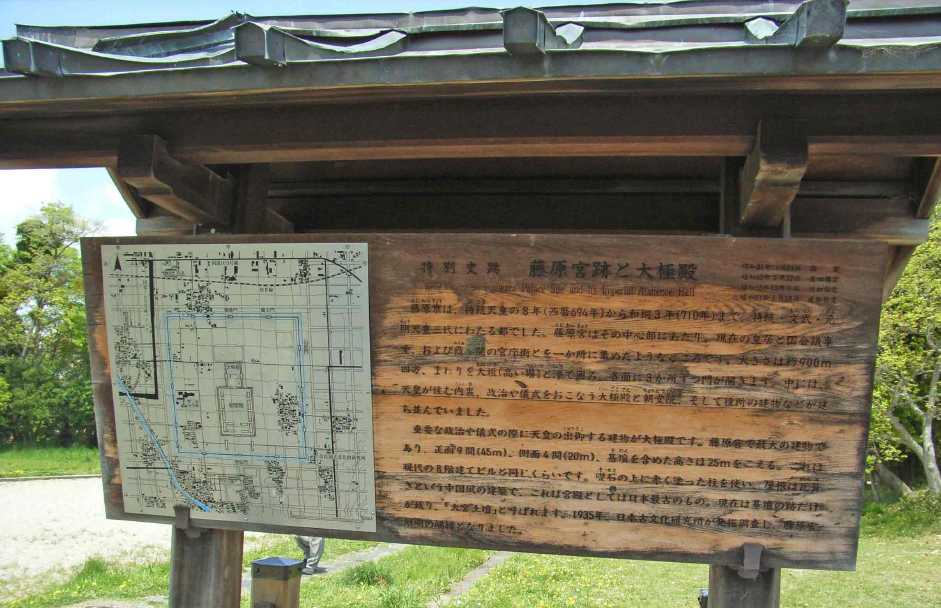 特別史跡 藤原宮跡と大極殿
Palace Site and its Imperial Audience Hall
藤原宮は、持統天皇の8年(西暦694年)から和銅3年(710年)まで、持統・文武・元
明天皇三代にわたる都でした。藤原宮はその中心部にあたり、現在の皇居と国会議事
堂、および霞ヶ関の官庁街とを一か所に集めたようなところです。大きさは約900m
四方、まわりを大垣(高い塀)と濠で囲み、各面に3か所ずつ門が開きます。中には、
天皇が住む内裏、政治や儀式をおこなう大極殿と朝堂院、そして役所の建物などが建
ち並んでいました。
重要な政治や儀式の際に天皇の出御する建物が大極殿です。藤原宮で最大の建物で
あり、正面9間(45m)、側面4間(20m)、基壇を含めた高さは25mをこえる。これは
現代の8階建てビルと同じくらいです。礎石の上に赤く塗った柱を使い、屋根は瓦葺
きという中国風の建築で、これは宮殿としては日本最古のもの。現在は基壇の跡だけ
が残り、「大宮土壇」と呼ばれます。1935年、日本古文化研究所が発掘調査し、藤原宮
解明の端緒となりました。